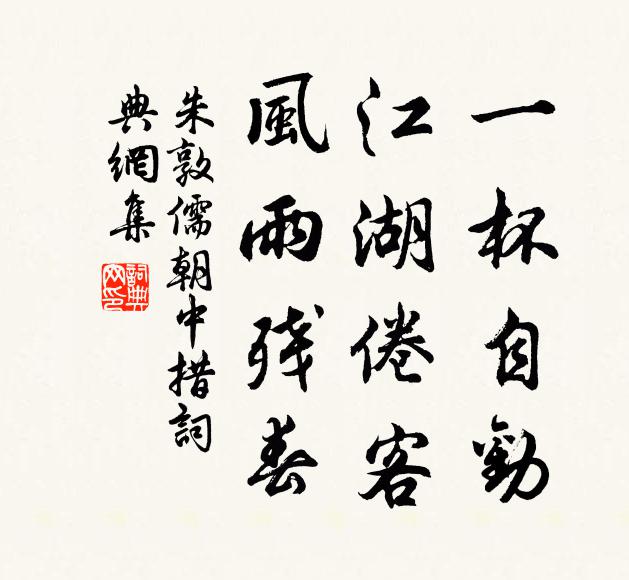 一杯自勸
江湖倦客
風雨残春
朱敦儒朝中措詞
典網集
詞典网印